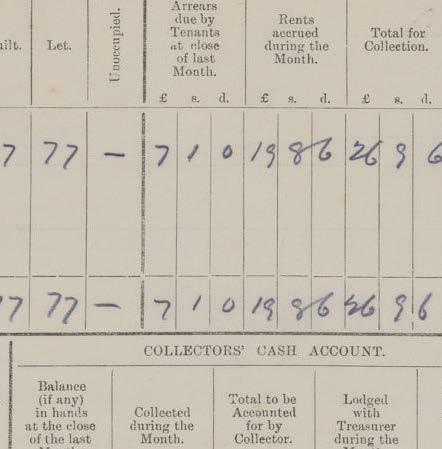 ilt. Let. Unoccupied. Arrears due by Tenants at close of last Month. Rents accrued during the Month. Total for Collection.
£ s. d. £ s. d. £ s. d.
7 77 – 7 1 0 19 8 6 26 9 6
77 77 – 7 1 0 19 8 6 26 9 6
COLLECTORS' CASH ACCOUNT.
Balance (if any) in hands at the close of the last
Collected during the Month.
Total to be Accounted for by Collector.
Lodged with Treasurer during the